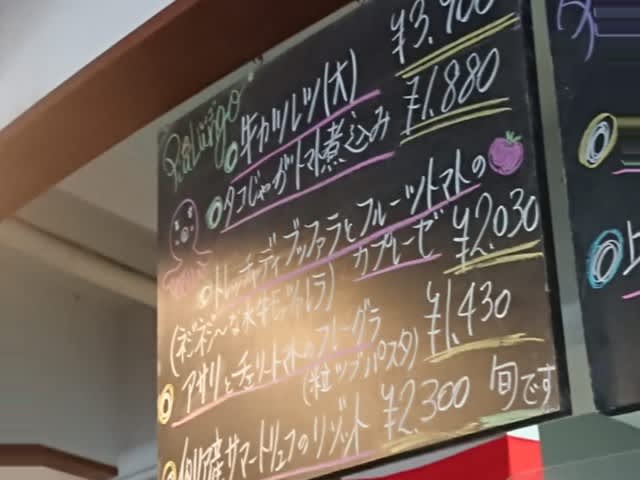 牛カツレツ(大) ¥3.900
タコじゃがトマト煮込み ¥1.880
トレッチャディブッファラとフルーツトマトの
カプレーゼ ¥2.030
(ネジネジ〜な水牛モッツァレラ)
アサリとチェリートマトのフレーグラ ¥1.430
(粒ツブパスタ)
イタリア産サマートリュフのリゾット ¥2.300 旬です